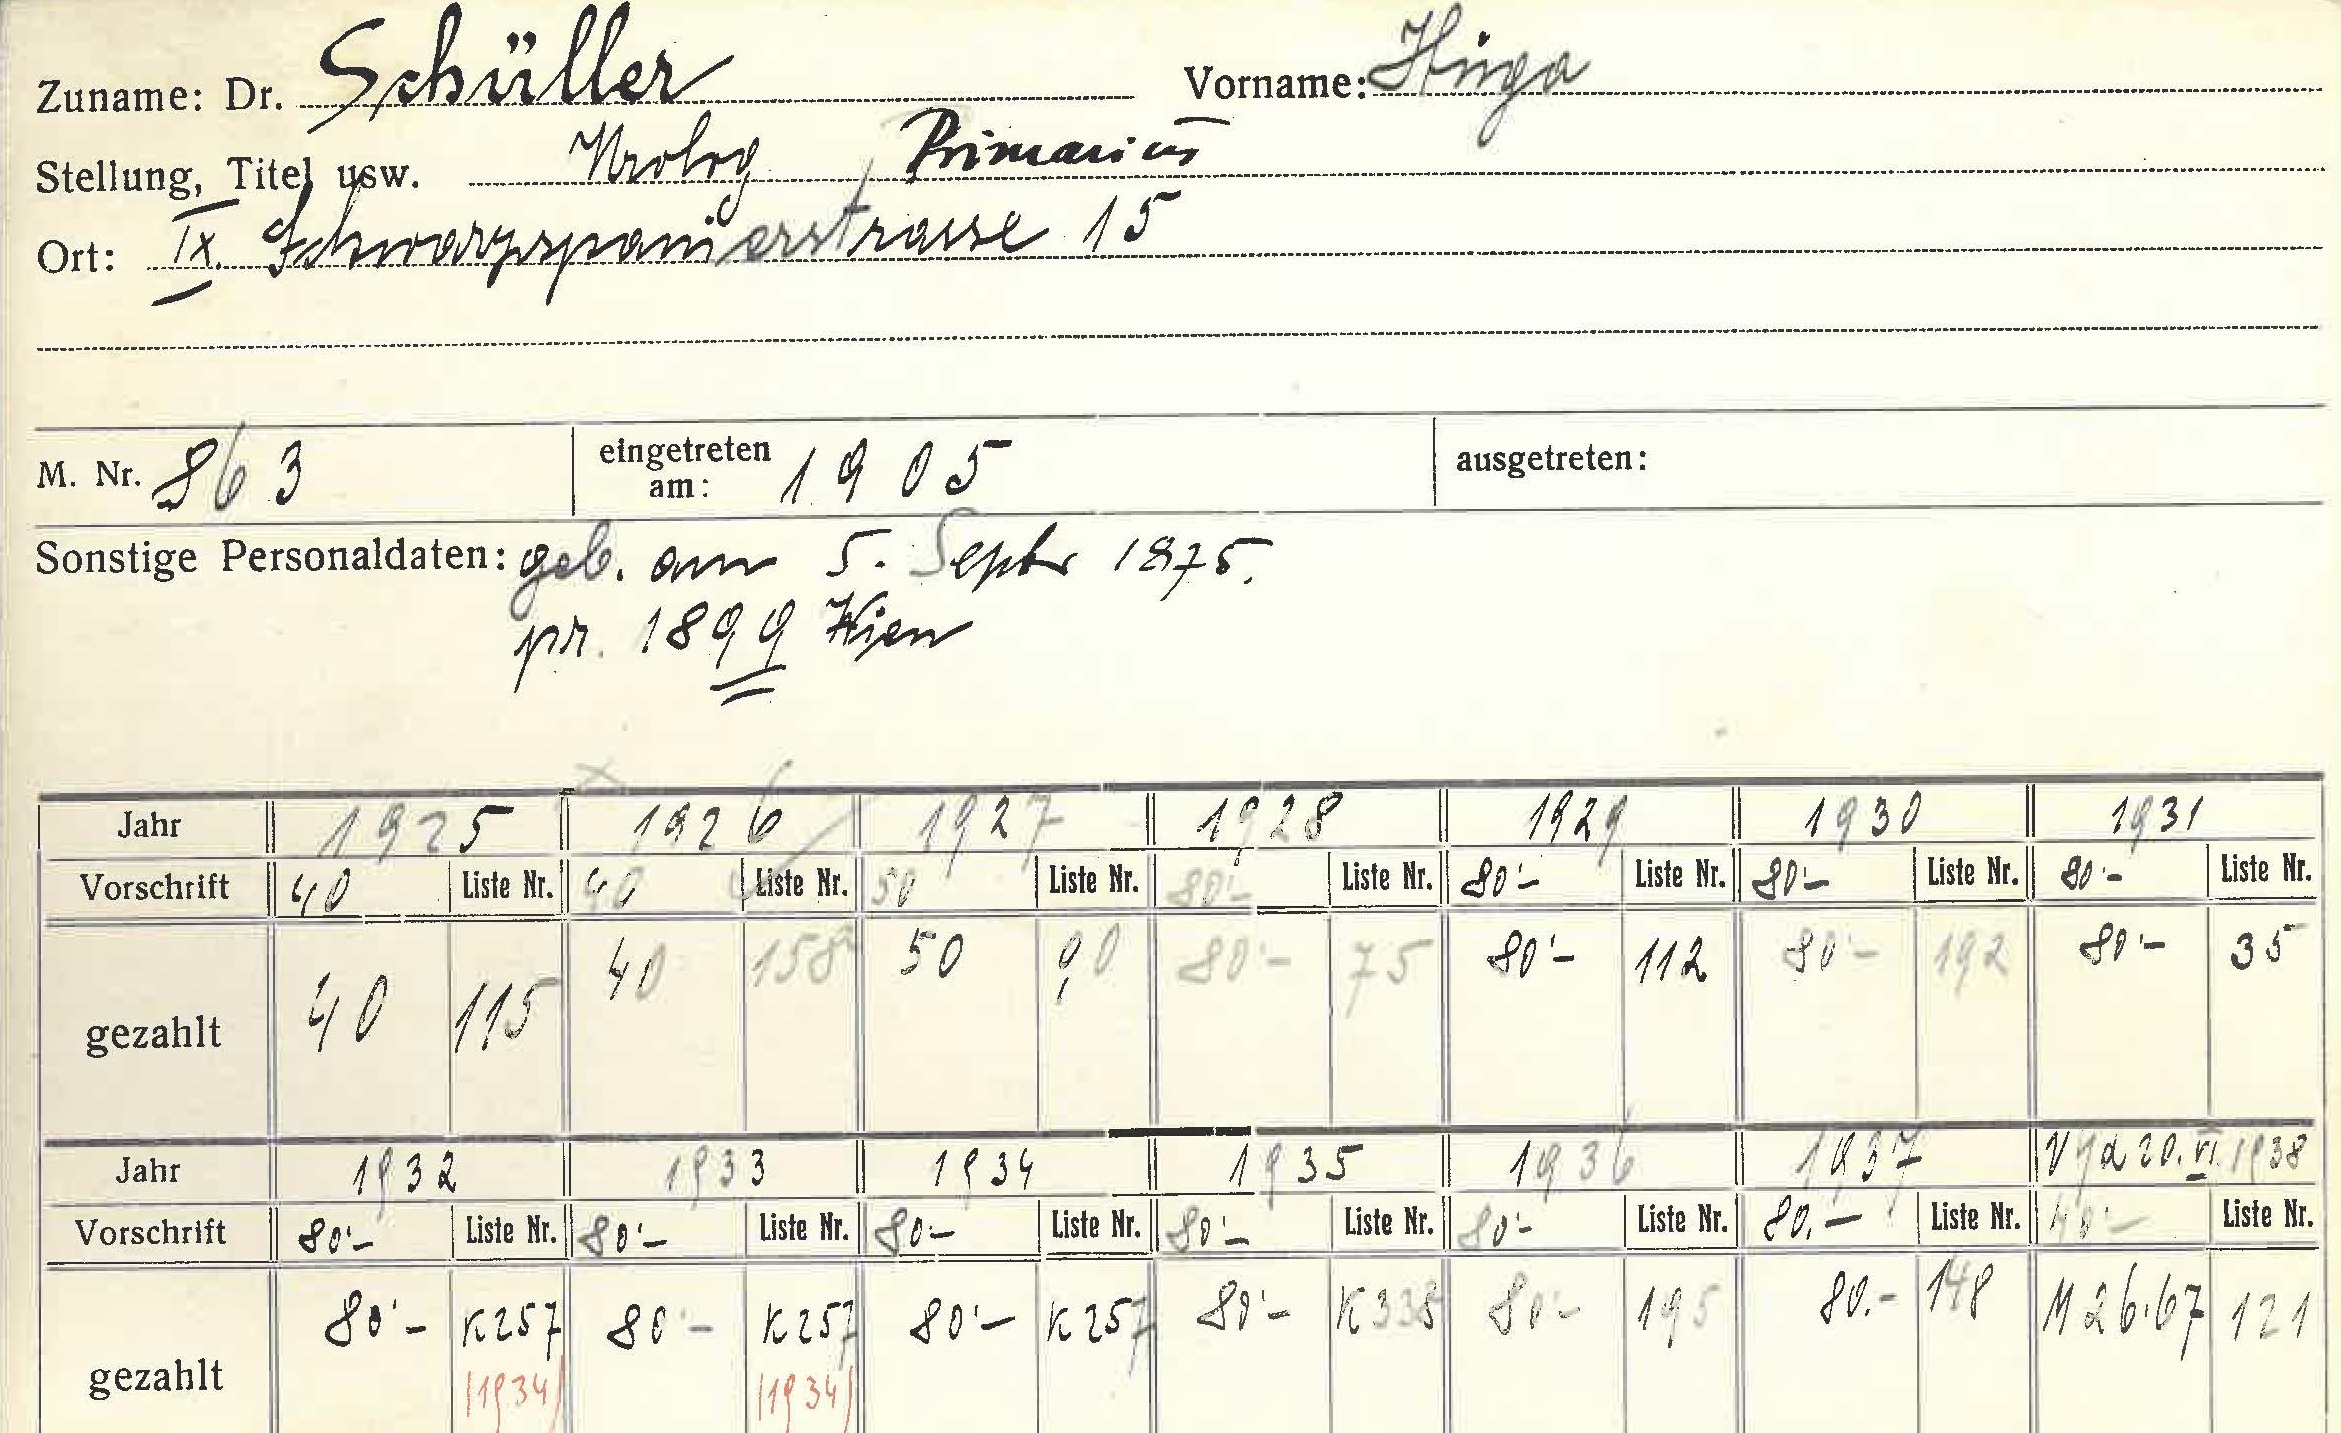 Zuname: Dr. Schüller Vorname: Hugo
Stellung, Titel usw. Urolog Primarius
Ort: IX. Schwarzspanierstrasse 15
M. Nr. 863 eingetreten am: 1905 ausgetreten:
Sonstige Personaldaten: geb. am 5. Septbr 1875.
pr. 1899 Wien
Jahr 1925 1926 1927 1928 1929 1930 1931
Vorschrift 40 Liste Nr. 40 Liste Nr. 50 Liste Nr. 80'- Liste Nr. 80'- Liste Nr. 80'- Liste Nr. 80'- Liste Nr.
gezahlt 40 115 40 158 50 90 80'- 75 80'- 112 80'- 192 80'- 35
Jahr 1932 1933 1934 1935 1936 1937 20. VI. 1938
Vorschrift 80'- Liste Nr. 80'- Liste Nr. 80'- Liste Nr. 80'- Liste Nr. 80'- Liste Nr. 80.- Liste Nr. 40'- Liste Nr.
gezahlt 80'- K257 80'- K257 80'- K257 80'- K338 80'- 195 80.- 148 M 26.67 121
(1934) (1934)